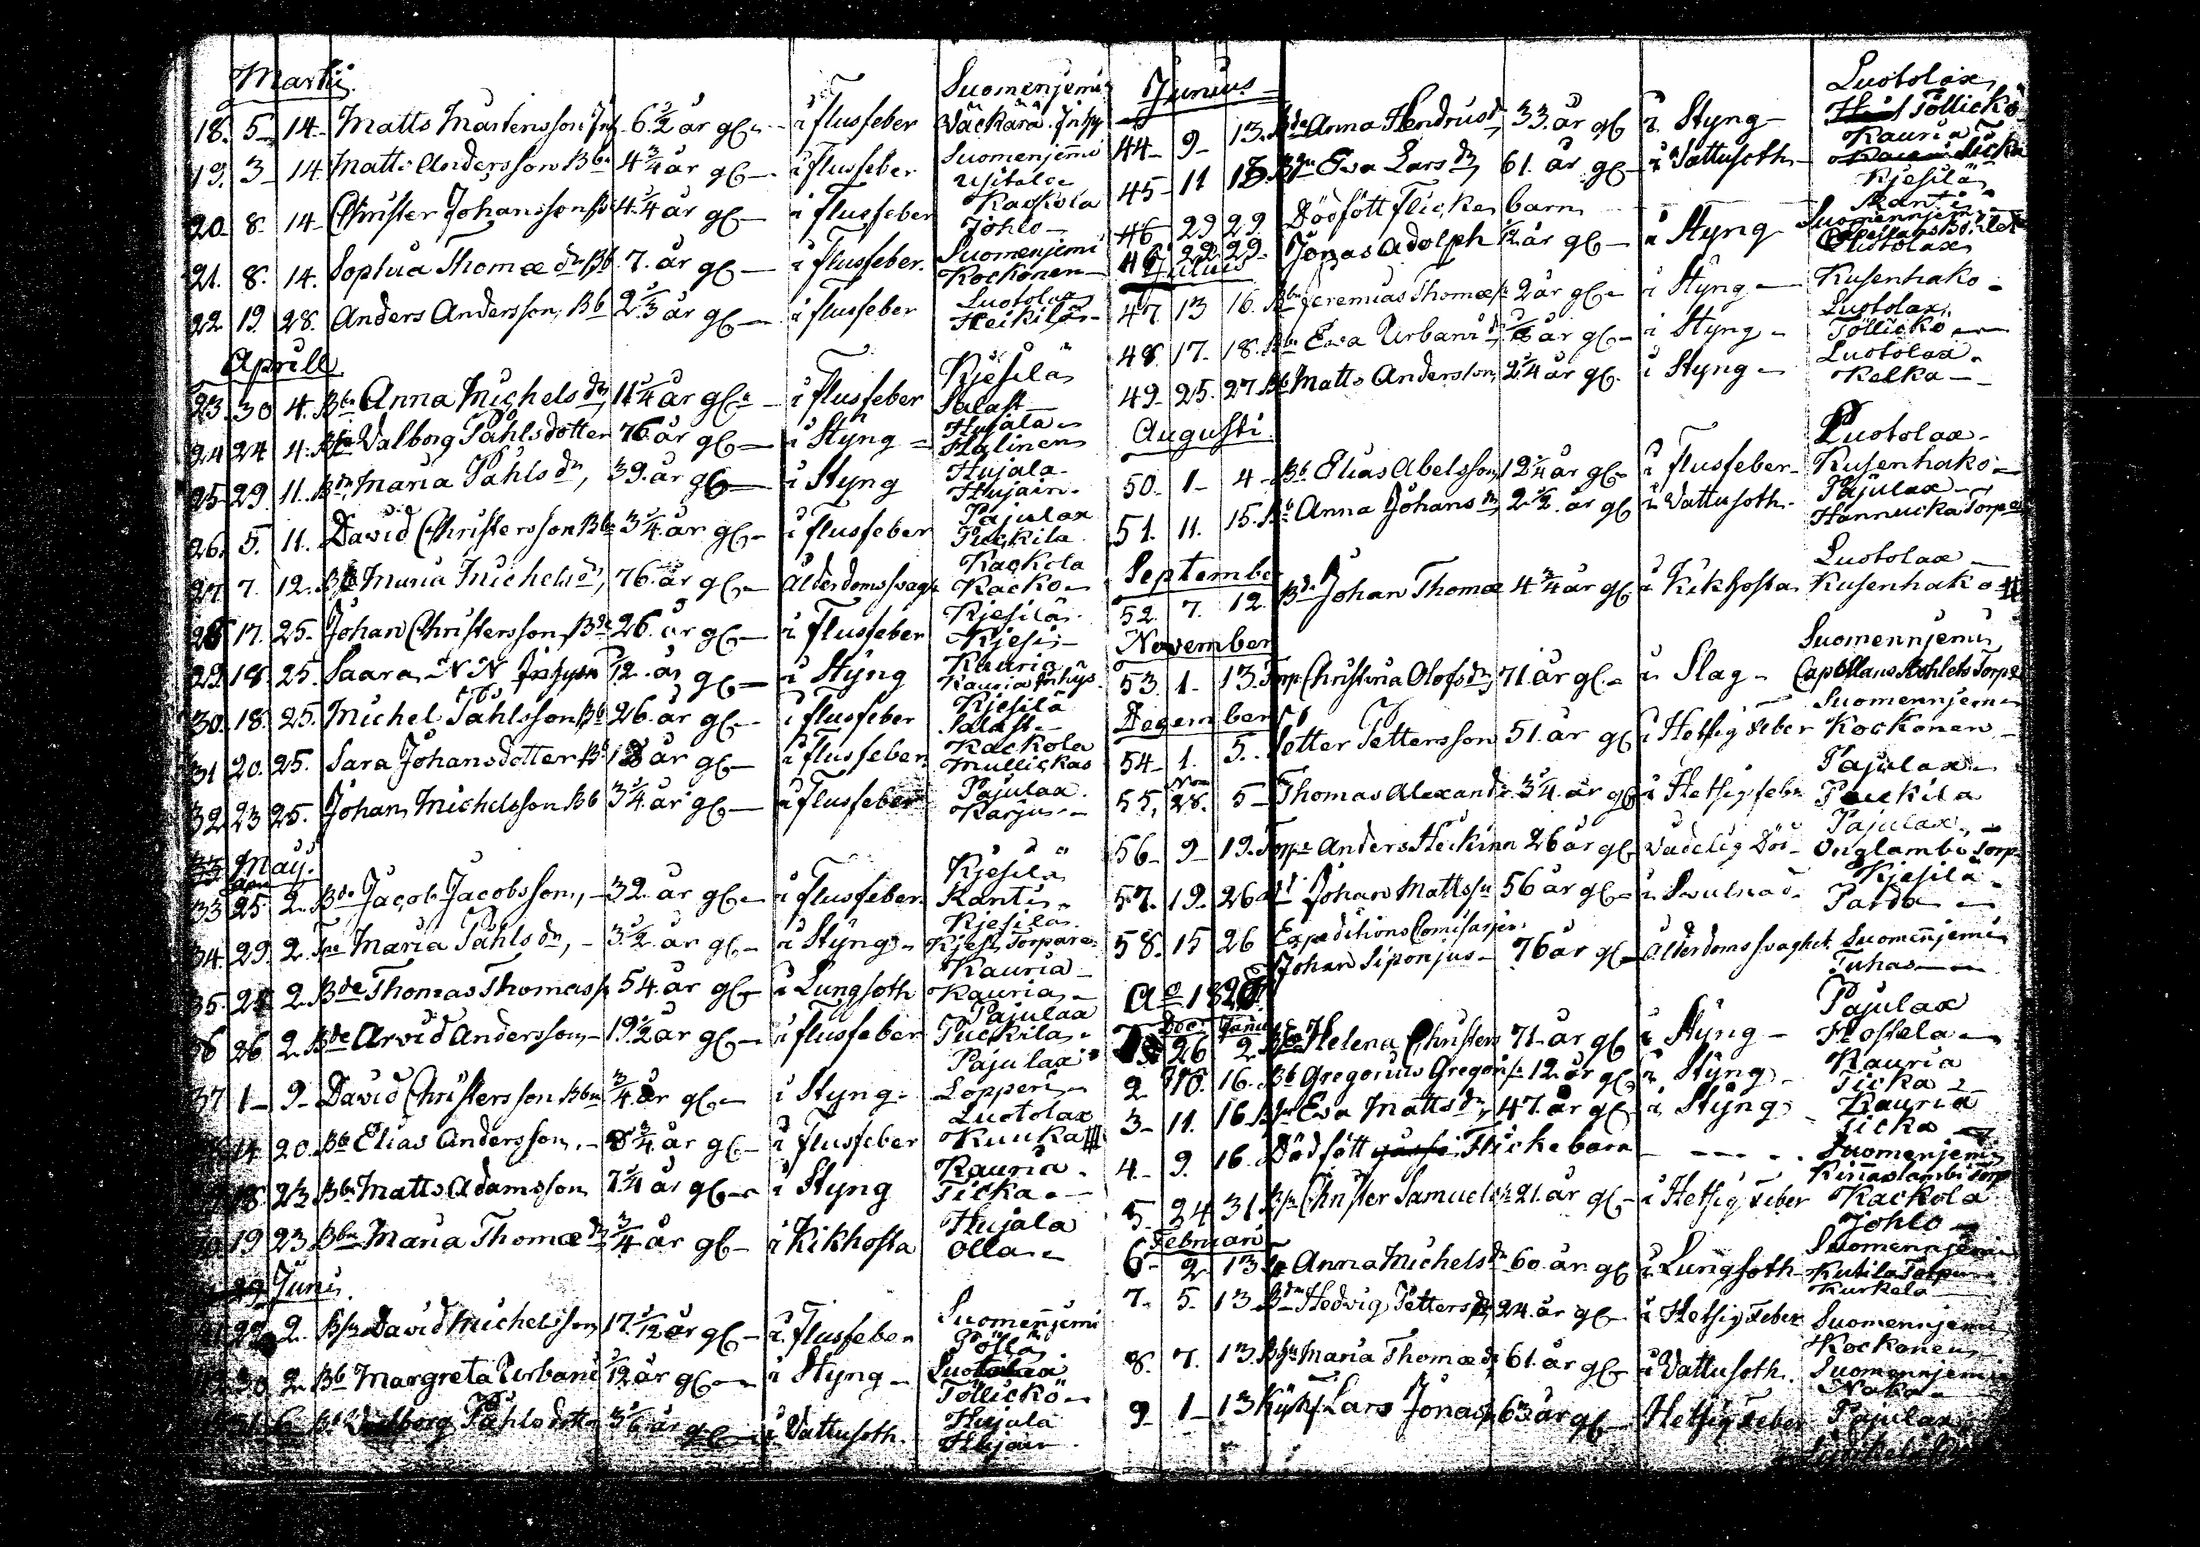 Martii
Suomenjemi
18. 5. 14. Matts Mårtensson Inh 6 1/2 år gl. i flusfeber Väckärä Inhy
19. 3 14. Matts Andersson Bbn 4 3/4 år gl. i flusfeber Suomenjemi
Usitalo
20. 8. 14. Christer Johansson 4 1/4 år gl. i flusfeber Kackola
Johlo
21. 8. 14. Sophia Thomæ dr Bb 7. år gl. i flusfeber. Suomenjemi
Kockonen
22 19. 28. Anders Andersson, Bb 2 1/3 år gl. i flusfeber Luotolax
Heikilä
Aprill
Kjesilä
23. 30 4. Bbn Anna Michels dr 11 1/4 år gl. i flusfeber Salast
24 24 4. Valborg Påhlsdotter 76 år gl. i Styng Hujala
Halinen
25 29. 11. Maria Påhls dr, 39. år gl. i Styng Hujala
Hujain.
26. 5. 11. David Christersson Bbn 3 1/4 år gl. i flusfeber Pajulax
Puckila
27 7. 12. Maria Michels dr, 76. år gl. ålderdomssvagh Kackola
Kacko
28 17. 25. Johan Christersson Bde 26. år gl. i flusfeber Kjesilä
Kjesi
29. 18. 25. Saara NN Inhysn 72. år gl. i Styng Kauria
Kauria Inhys.
30. 18. 25. Michel Påhlsson Bb 26. år gl. i flusfeber Kjesilä
Salast
31 20. 25. Sara Johansdotter Bb 18 år gl. i flusfeber Kackola
Mullickas
32 23 25. Johan Michelsson Bb 3 1/4 år gl. i flusfeber Pajulax
Karjus
May.
Kjesilä
33 25 2. Bde Jacob Jacobsson, 32. år gl. i flusfeber Kanti
34. 29. 2. Maria Påhls dr, 3 1/2 år gl. i Styng Kjesilä
Kjesi Torpare
35. 2. Bde Thomas Thomass. 54 år gl. i Lungsoth Kauria
Kauria
36 26 2. Bde Arvid Andersson 19 1/2 år gl. i flusfeber Pajulax
Puckila
37 1 9 David Christersson Bbn 3/4 år gl. i Styng Pajulax
Lopperi
14 20. Bb Elias Andersson. 3/4 år gl. i flusfeber Luotolax
Kuuka
18. 23 Bbn Matts Adamsson 7 1/4 år gl. i Styng Kauria
Ticka
19 23 Bbn Maria Thomæ dr 3/4 år gl. i Kikhosta Hujala
Olla
Juni.
2. David Michelsson 17 1/12 år gl. i flusfeber Suomenjemi
Pöllä
30 2. Bb Margreta Urbani 1/12 år gl. i Styng Luotolax
Töllickö
31. 6. Valborg Påhlsdotter 3 1/6 år gl. i Vattusoth. Hujala
Hujain
Junius
Luotolax
44 9 13. Anna Hendrics dr, 33. år gl. i Styng Töllickö
45 11 13. Eva Lars dr, 61. år gl. i Vattusoth Kauria
Ticka
46 29 29. Dödfött Flicke barn Kjesilä
Kanti
46 22 29. Jonas Adolph år gl. i Styng Suomennjemi
Julius
Luotolax
47 13 16. Bbn Jeremias Thomæ 2 år gl. i Styng Kusenhako
48. 17. 18. Bbn Eva Urbani dr år gl. i Styng Luotolax
Töllickö
49. 25. 27 Bb Matts Andersson, 2 1/4 år gl. i Styng Luotolax
Kelka
Augusti
Luotolax
50. 1 4 Bb Elias Abelsson, 12 1/4 år gl. i flusfeber Kusenhako
51. 11. 15. Anna Johans dr, 2 1/2 år gl. i Vattusoth. Pajulax
Hannucka Torpare
September
Luotolax
52. 7. 12. Bde Johan Thomæ 4 3/4 år gl. i Kikhosta Kusenhako
November
Suomennjemi
53 1. 13. Torp. Christina Olofs dr, 71. år gl. i Slag Capellans Bohlets Torpare
December
Suomennjemi
54 1. 5. Petter Pettersson 51. år gl. i Hetsig Feber Kockonen
Nov
Pajulax
55. 28. 5 Thomas Alexand. 3/4. år gl. i Hetsig feber Puckila
56 9 19. Torp. Anders Heckinn 26 år gl. Vådelig Död Pajulax
Onglambi Torp.
57. 19. 26 Johan Mattss. 56 år gl. i Svulnad. Kjesilä
Parda
58. 15 26 Expeditions Comisarjen
Johan Siponjus 76 år gl. ålderdomssvaghet Suomenjemi
Tuhas
Ao 1820
Dec. Janu.
Pajulax
26 2 Helena Christers 71. år gl. i Styng Hossela
2 10. 16. Bb Gregorius Gregori 12. år gl. i Styng Kauria
Ticka
3 11. 16. Eva Matts dr, 47. år gl. i Styng Kauria
Ticka
4 9. 16. Dödfött Flicke barn Suomenjemi
Kinnaslambi Torp
5 24 31 Christer Samuels. 21. år gl. i Hetsig Feber Kackola
Johlo
Februari
6 2 13. Anna Michels dr 60. år gl. i Lungsoth Suomennjemi
Kutila Torpare
7. 5. 13 Hedvig Petters dr, 24. år gl. i Hetsig Feber Kurkela
Suomennjemi
8. 7. 13. Maria Thomæ dr 61. år gl. i Vattusoth. Kockonen
Suomennjemi
9 1 13 Lars Jonass. 63 år gl. Hetsig Feber Pajulax